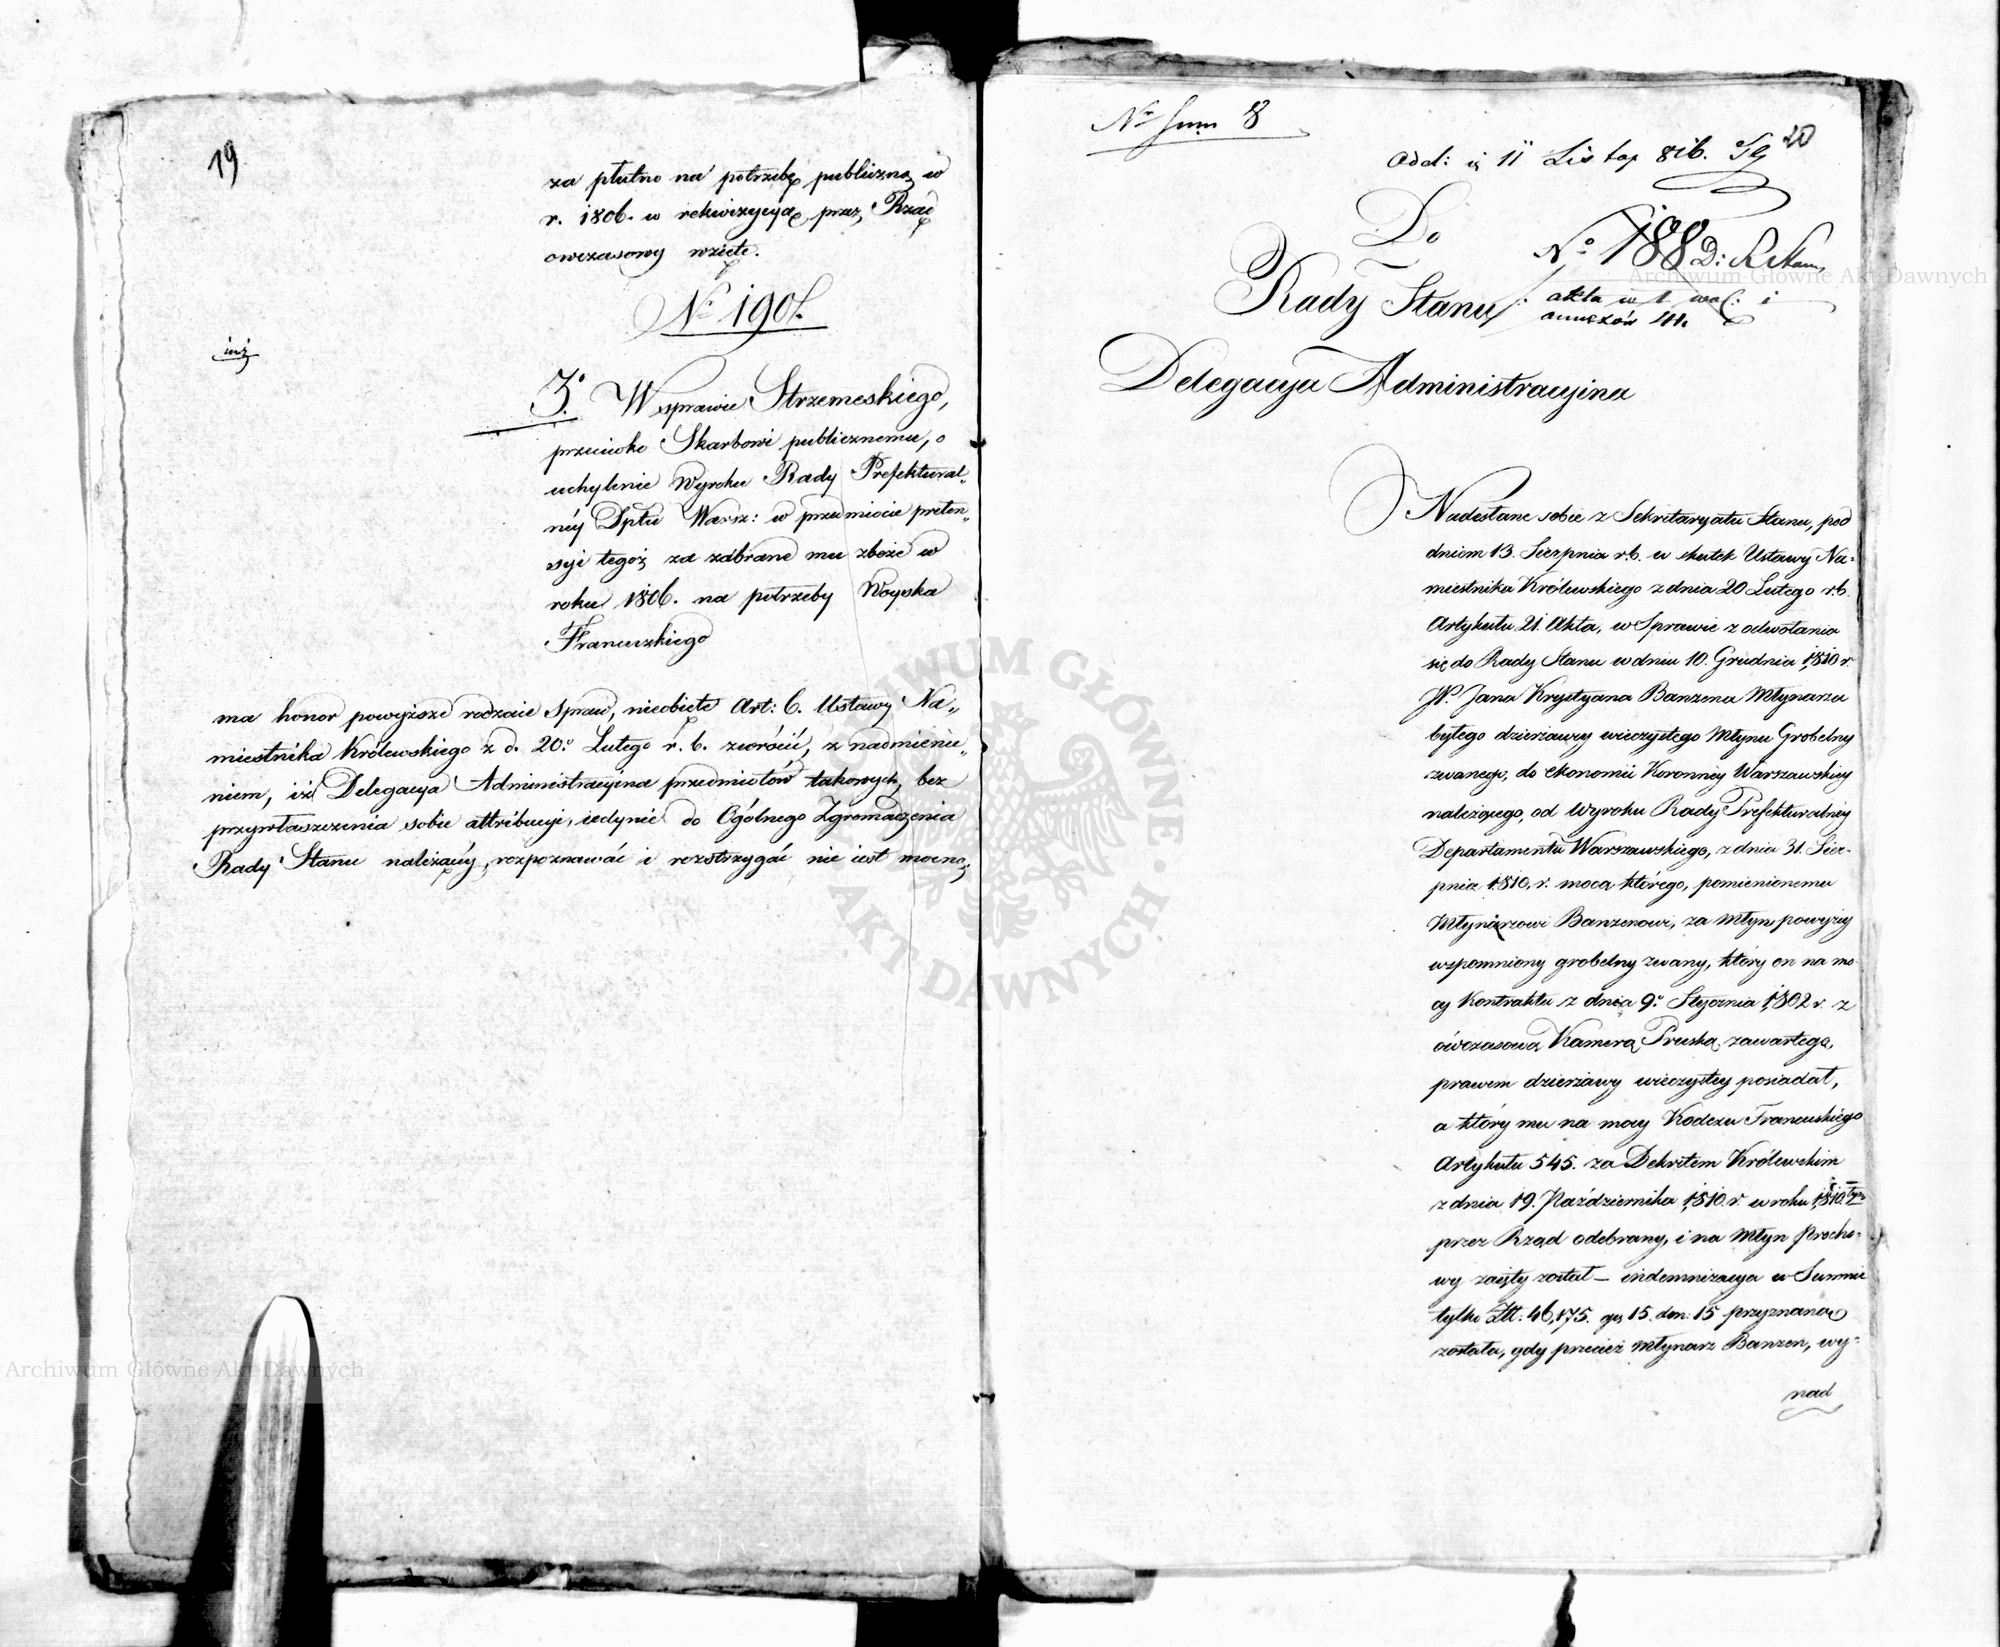 19
za płutno na potrzebę publiczną w
r. 1806. w rekwizycyą, przez Rząd
owczasowy wzięte.
No 190f.
3o W sprawie Strzemeskiego,
przeciwko Skarbowi publicznemu, o
uchylenie Wyroku Rady Prefektural„
néy Dptu Warsz: w przedmiocie preten„
syi tegoż za zabrane mu zboże w
roku 1806. na potrzeby Woyska
Francuzkiego
ma honor powyższe rodzaie Spraw, nieobięte Art: 6. Ustawy Na„
miestnika Królewskiego z d. 20o Lutego r. b. zwrócić, z nadmienie„
niem, iż Delegacya Administracyina przedmiotów takowych, bez
przywłaszczenia sobie attribucyi, iedynie do Ogólnego Zgromadzenia
Rady Stanu należącéy, rozpoznawać i rozstrzygać nie iest mocną,
20
Odd: 11 Listop 816.
Do
No 188
Rady Stanu
akta w 1 wol: i
annexów
Delegacyia Administracyina
Nadesłane sobie z Sekretaryatu Stanu, pod
dniem 13. Sierpnia r.b. w skutek Ustawy Na-
miestnika Królewskiego z dnia 20 Lutego r.b.
Artykułu 21. Akta, w Sprawie z odwołania
się do Rady Stanu w dniu 10. Grudnia 1810 r.
Jana Krystyana Banzena Młynarza
byłego dzierżawcy wieczystego Młynu Grobelny
zwanego, do Ekonomii Koronnéy Warszawskiey
należącego, od Wyroku Rady Prefekturalnéy
Departamentu Warszawskiego, z dnia 31. Sier-
pnia 1810. r. mocą którego, pomienionemu
Młynarzowi Banzenowi, za Młyn powyżey
wspomniony grobelny zwany, który on na mo
cy Kontraktu z dnia 9o Stycznia 1802 r. z
ówczasową Kamerą Pruską zawartego,
prawem dzierżawy wieczystey posiadał,
a który mu na mocy Kodexu Francuskiégo
Artykułu 545. za Dekretem Królewskim
z dnia 19. Października 1810. r. w roku 1810.
przez Rząd odebrany, i na Młyn Procho-
wy zaięty został – indemnizacya w Summie
tylko Złł: 46,175. gr 15. den: 15 przyznana
została, gdy przecież Młynarz Banzen, wy-
nad
Archiwum Główne Akt Dawnych
Archiwum Główne Akt Dawnych
ARCHIWUM GŁÓWNE AKT DAWNYCH